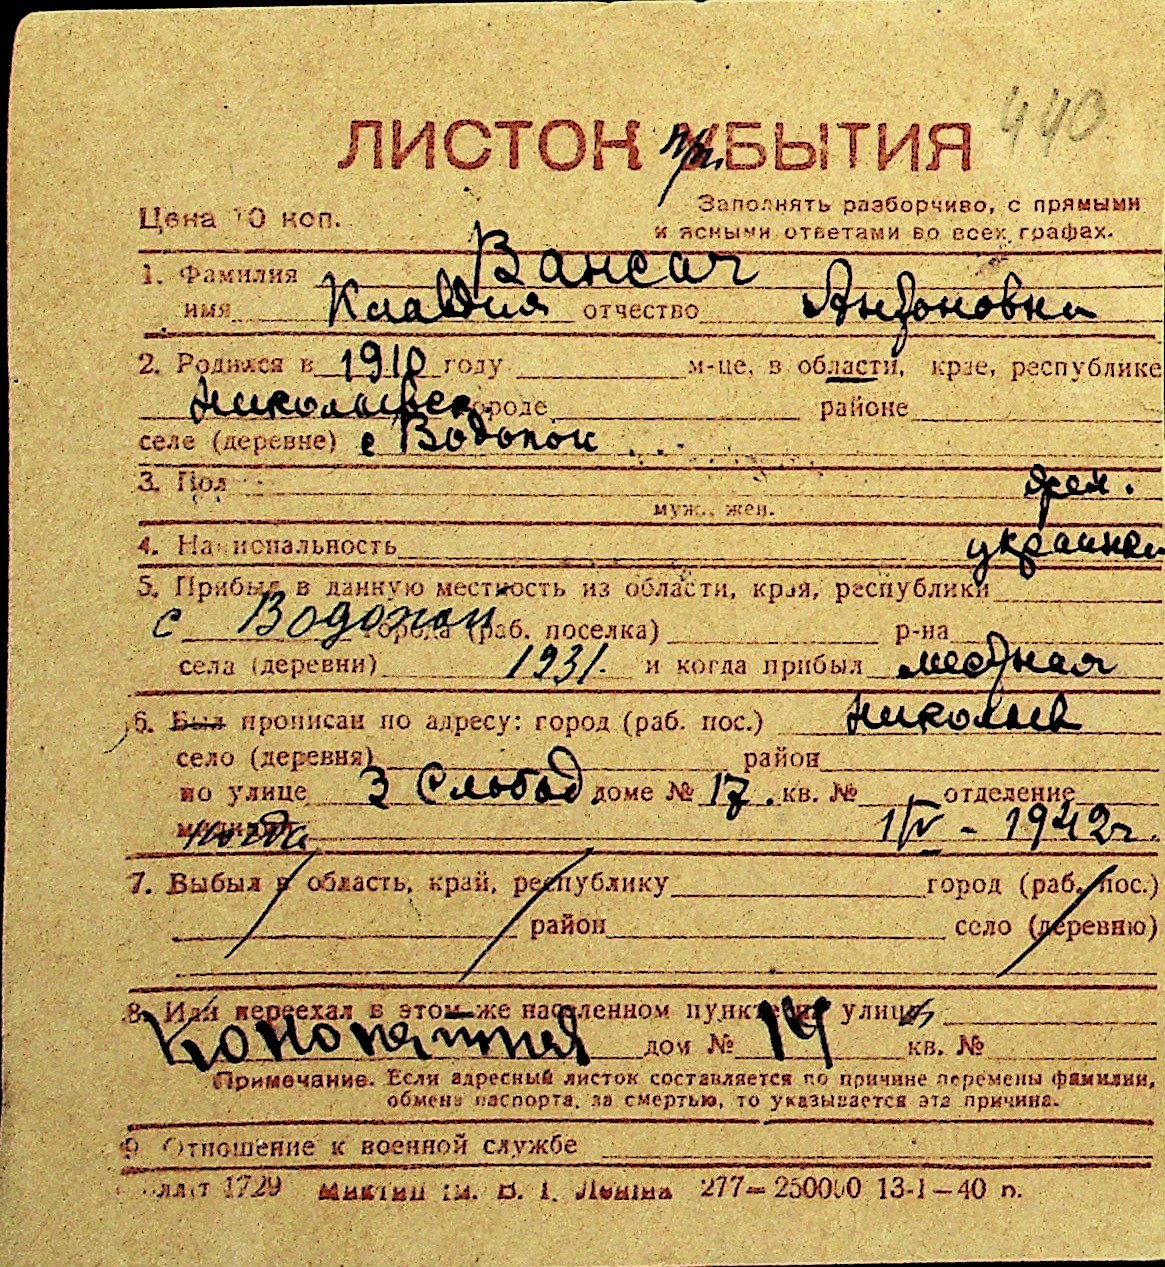 440
ЛИСТОК при УБЫТИЯ
Цена 10 коп.
Заполнять разборчиво, с прямыми
и ясными ответами во всех графах.
1. Фамилия Вансач
имя Клавдия отчество Антоновна
2. Родился в 1910 году м-це, в области, крае, республике
Николаевск. городе районе
селе (деревне) с Водопои
3. Пол жен.
муж., жен.
4. Национальность украинка
5. Прибыл в данную местность из области, края, республики
с Водопои города (раб. поселка) р-на
села (деревни) 1931. и когда прибыл местная
6. Был прописан по адресу: город (раб. пос.) Николаев
село (деревня) район
по улице 3 Слобод доме № 17. кв. № отделение
милиции когда 1/IV - 1942 г.
7. Выбыл в область, край, республику город (раб. пос.)
район село (деревню)
8. Или переехал в этом же населенном пункте на улицу
дом № кв. №
Примечание. Если адресный листок составляется по причине перемены фамилии,
обмена паспорта, за смертью, то указывается эта причина.
9 Отношение к военной службе
1729 им. В. І. Леніна 277—250000 13-1—40 п.